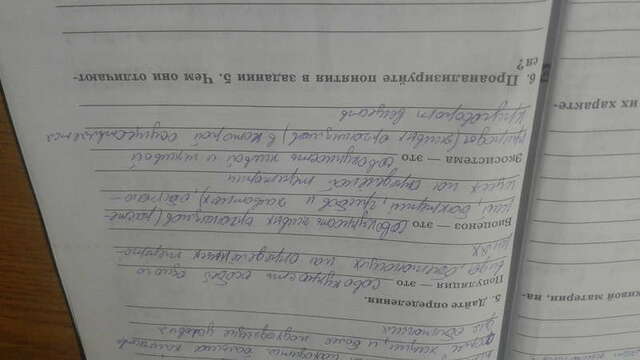 находить
жали хищн, и более подходящие условия
для обитания
5. Дайте определения.
Популяция — это совокупность особей одного
вида, обитающих на определённых террито-
риях
Биоценоз — это совокупность живых организмов (расте-
ний, бактерий, грибов и животных), обитаю-
щих на определённой территории
Экосистема — это совокупность живой и неживой
природы (живых организмов), в которой осуществляется
круговорот веществ
6. Проанализируйте понятия в задании 5. Чем они отличают-
ся?
живой материи, на-
их характе-